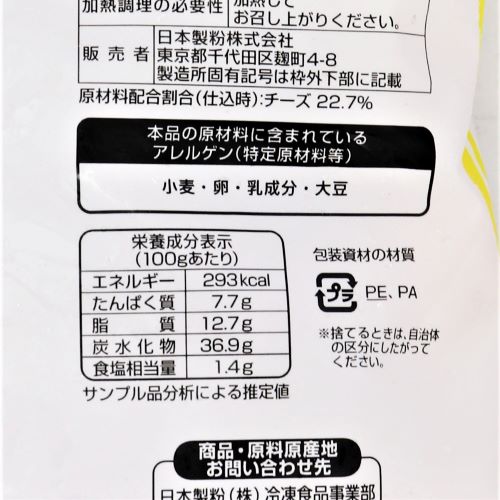 加熱調理の必要性 加熱して
お召し上がりください。
販売者 日本製粉株式会社
東京都千代田区麹町4-8
製造所固有記号は枠外下部に記載
原材料配合割合(仕込時):チーズ 22.7%
本品の原材料に含まれている
アレルゲン(特定原材料等)
小麦・卵・乳成分・大豆
栄養成分表示
(100gあたり)
エネルギー 293kcal
たんぱく質 7.7g
脂質 12.7g
炭水化物 36.9g
食塩相当量 1.4g
サンプル品分析による推定値
包装資材の材質
プラ PE、PA
※捨てるときは、自治体
の区分にしたがって
ください。
商品・原料原産地
お問い合わせ先
日本製粉(株)冷凍食品事業部